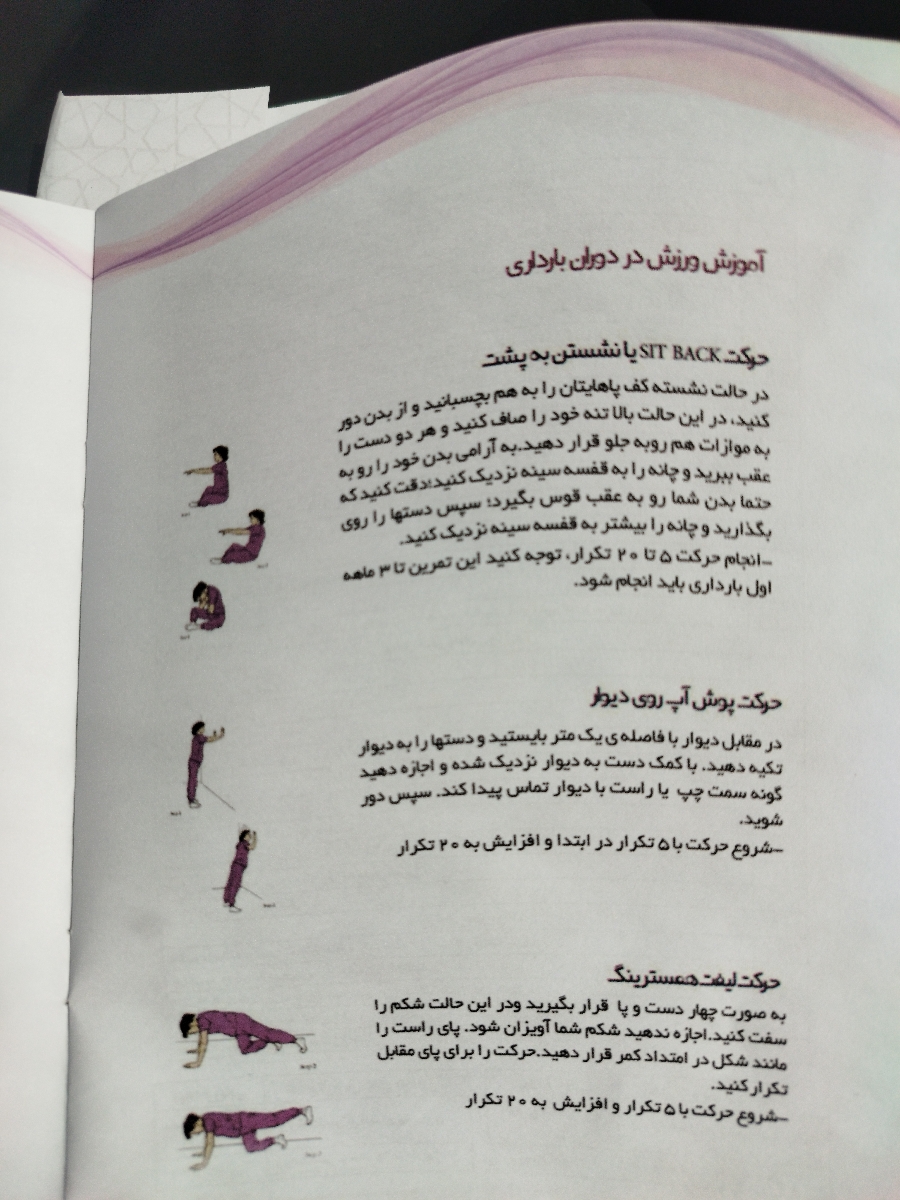 آموزش ورزش در دوران بارداری
حرکت SIT BACK یا نشستن به پشت
در حالت نشسته کف پاهایتان را به هم بچسبانید و از بدن دور
کنید، در این حالت بالا تنه خود را صاف کنید و هر دو دست را
به موازات هم روبه جلو قرار دهید.به آرامی بدن خود را رو به
عقب ببرید و چانه را به قفسه سینه نزدیک کنید؛دقت کنید که
حتما بدن شما رو به عقب قوس بگیرد؛ سپس دستها را روی
بگذارید و چانه را بیشتر به قفسه سینه نزدیک کنید.
-انجام حرکت ۵ تا ۲۰ تکرار، توجه کنید این تمرین تا ۳ ماهه
اول بارداری باید انجام شود.
حرکت پوش آپ روی دیوار
در مقابل دیوار با فاصله ی یک متر بایستید و دستها را به دیوار
تکیه دهید. با کمک دست به دیوار نزدیک شده و اجازه دهید
گونه سمت چپ یا راست با دیوار تماس پیدا کند. سپس دور
شوید.
-شروع حرکت با ۵ تکرار در ابتدا و افزایش به ۲۰ تکرار
حرکت لیفت همسترینگ
به صورت چهار دست و پا قرار بگیرید ودر این حالت شکم را
سفت کنید.اجازه ندهید شکم شما آویزان شود. پای راست را
مانند شکل در امتداد کمر قرار دهید.حرکت را برای پای مقابل
تکرار کنید.
-شروع حرکت با ۵ تکرار و افزایش به ۲۰ تکرار